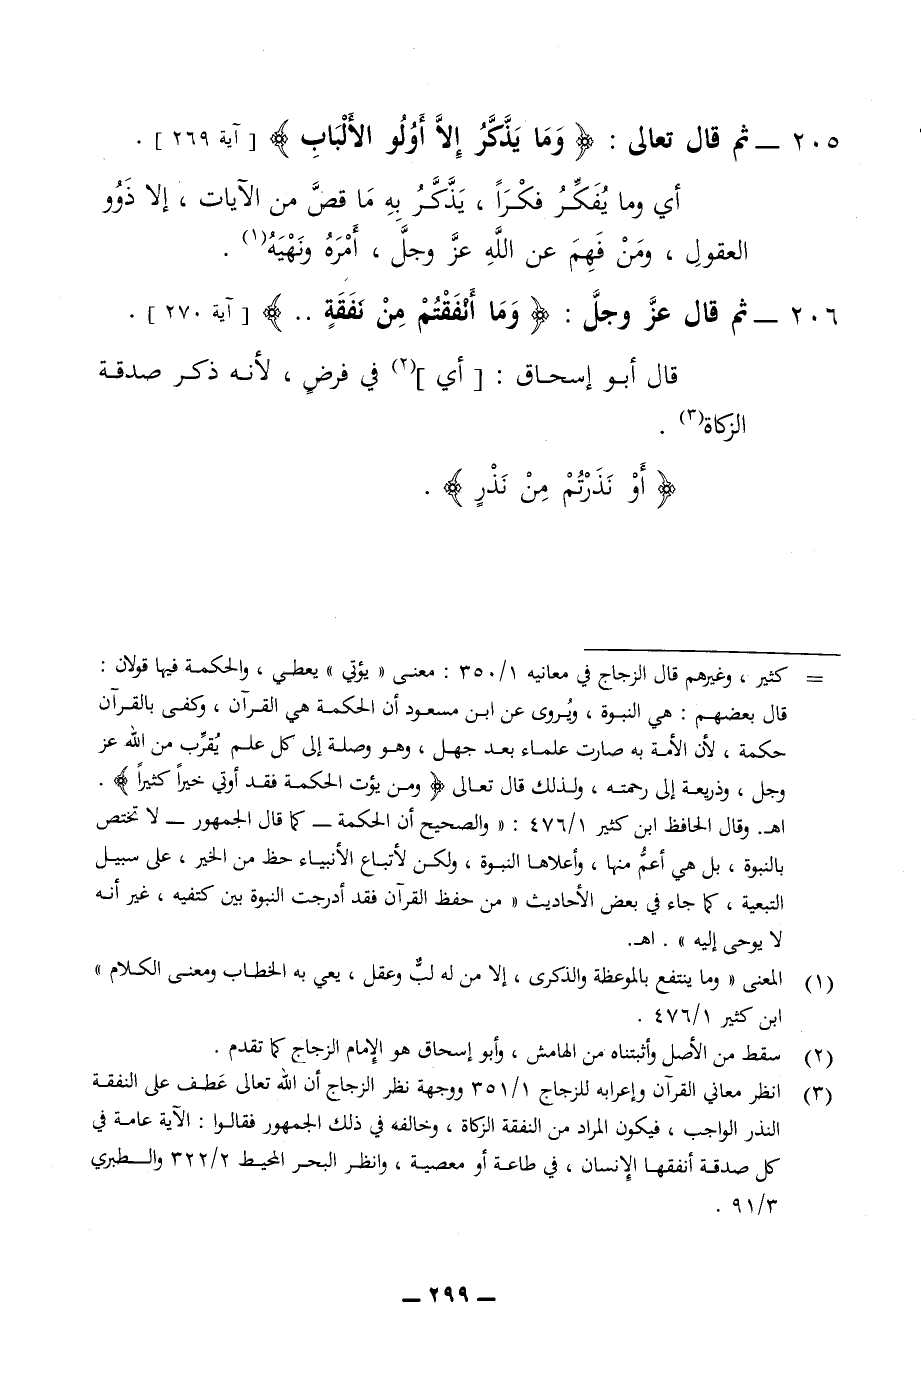 ٢٠٥ ــ ثم قال تعالى : ﴿ وَمَا يَذَّكَّرُ إِلاَّ أُوْلُو الأَلْبَابِ ﴾ [ آية ٢٦٩ ] .
أي وما يُفَكِّرُ فكْرَاً ، يَذَّكَّرُ بِهِ مَا قصَّ من الآيات ، إلا ذَوُو
العقولِ ، ومَنْ فَهِمَ عن اللَّهِ عزَّ وجلَّ ، أَمْرَهُ ونَهْيَهُ(١) .
٢٠٦ ــ ثم قال عزَّ وجلَّ : ﴿ وَمَا أَنْفَقْتُمْ مِنْ نَفَقَةٍ .. ﴾ [ آية ٢٧٠ ] .
قال أبو إسحاق : [ أي ](٢) في فرضٍ ، لأنه ذكر صدقة
الزكاة(٣) .
﴿ أَوْ نَذَرْتُمْ مِنْ نَذْرٍ ﴾ .
= كثير ، وغيرهم قال الزجاج في معانيه ٣٥٠/١ : معنى « يؤتي » يعطي ، والحكمة فيها قولان :
قال بعضهم : هي النبوة ، ويُروى عن ابن مسعود أن الحكمة هي القرآن ، وكفى بالقرآن
حكمة ، لأن الأمة به صارت علماء بعد جهل ، وهو وصلة إلى كل علم يُقرِّب من الله عز
وجل ، وذريعة إلى رحمته ، ولذلك قال تعالى ﴿ ومن يؤت الحكمة فقد أوتي خيراً كثيراً ﴾ .
اهـ. وقال الحافظ ابن كثير ٤٧٦/١ : « والصحيح أن الحكمة ــ كما قال الجمهور ــ لا تختص
بالنبوة ، بل هي أعمُّ منها ، وأعلاها النبوة ، ولكن لأتباع الأنبياء حظ من الخير ، على سبيل
التبعية ، كما جاء في بعض الأحاديث « من حفظ القرآن فقد أدرجت النبوة بين كتفيه ، غير أنه
لا يوحى إليه » . اهـ.
(١) المعنى « وما ينتفع بالموعظة والذكرى ، إلا من له لبٌّ وعقل ، يعي به الخطاب ومعنى الكلام »
ابن كثير ٤٧٦/١ .
(٢) سقط من الأصل وأثبتناه من الهامش ، وأبو إسحاق هو الإمام الزجاج كما تقدم .
(٣) انظر معاني القرآن وإعرابه للزجاج ٣٥١/١ ووجهة نظر الزجاج أن الله تعالى عَطف على النفقة
النذر الواجب ، فيكون المراد من النفقة الزكاة ، وخالفه في ذلك الجمهور فقالوا : الآية عامة في
كل صدقة أنفقها الإنسان ، في طاعة أو معصية ، وانظر البحر المحيط ٣٢٢/٢ والطبري
٩١/٣ .
ــ ٢٩٩ ــ